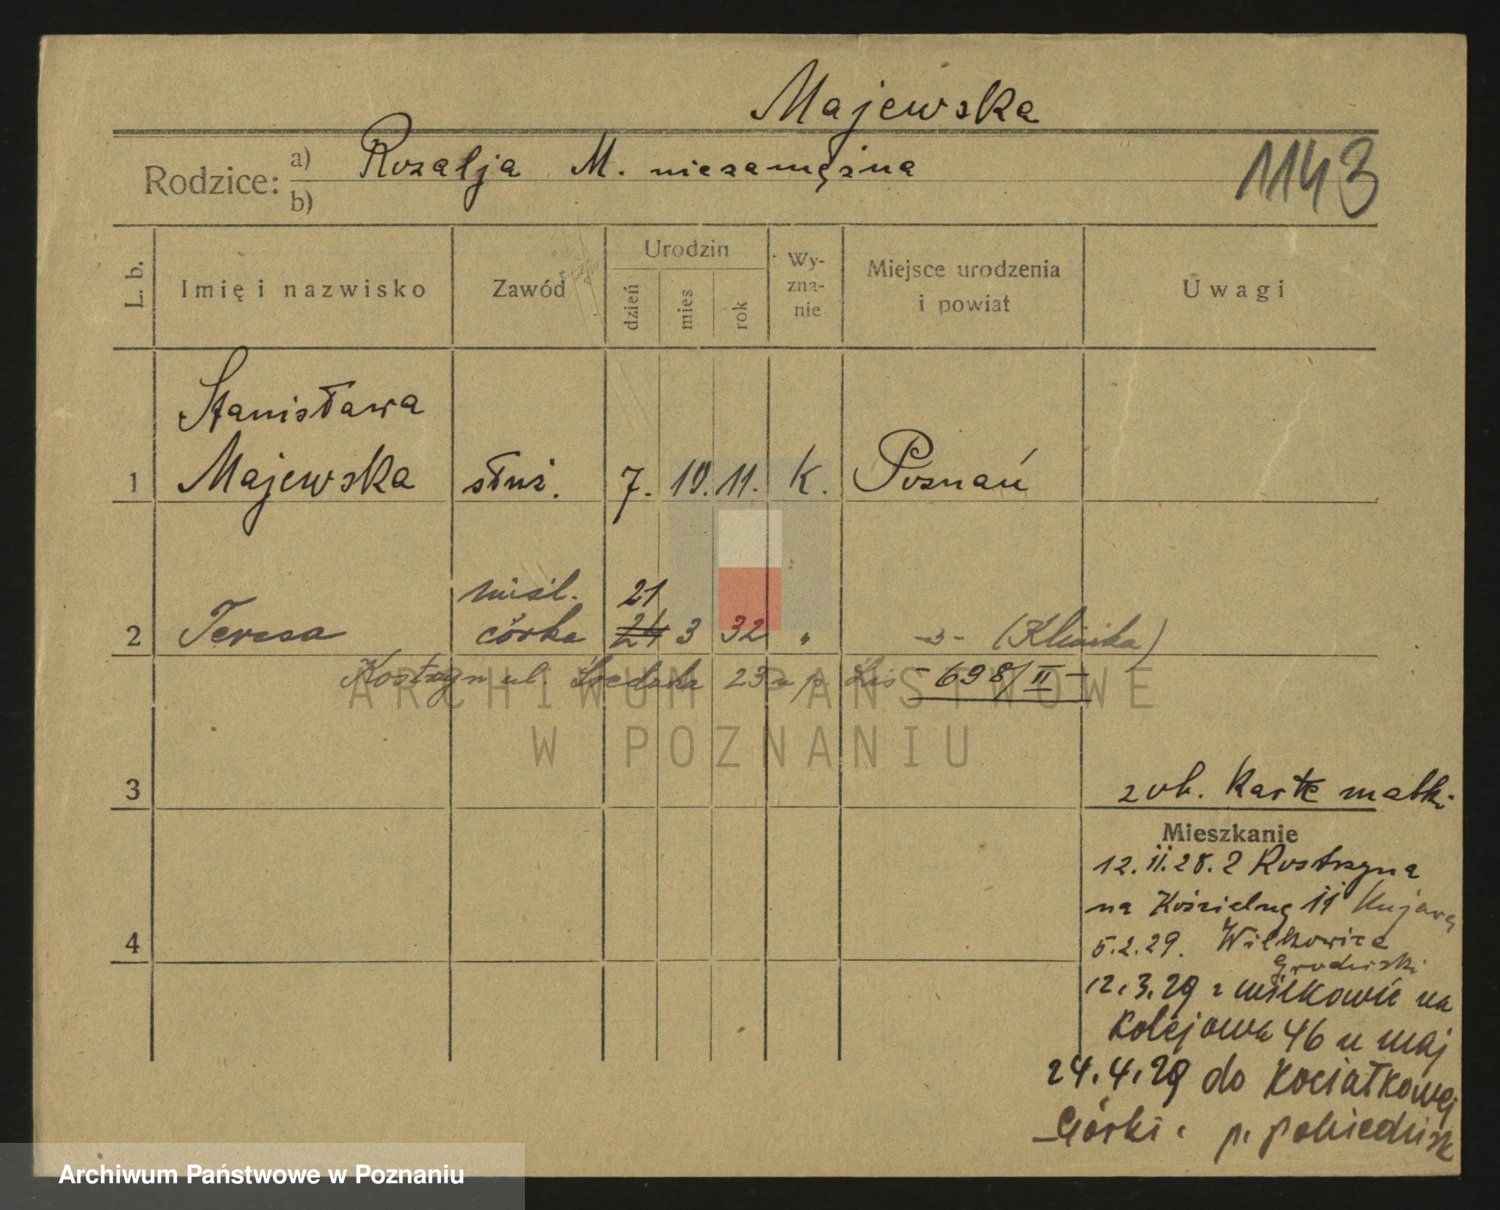 Majewska
Rodzice: a) Rozalja M. niezamężna
b)
1143
L. b.
Imię i nazwisko
Zawód
Urodzin
dzień
mies
rok
Wy-
zna-
nie
Miejsce urodzenia
i powiat
Uwagi
Stanisława
1 Majewska służ. 7. 10. 11. K. Poznań
nieśl. 21
2 Teresa córka 24 3 32 " -"- (Klinika)
Kostrzyn ul. Średzka 23 u p. Lis - 698/II -
ARCHIWUM PAŃSTWOWE
W POZNANIU
3
zob. Kartę matki.
Mieszkanie
12. II. 28. z Kostrzyna
na Kościelną 11 Kujawa
4
5.2.29. Wilkowice
Grodziski
12.3.29 z Wilkowic na
Kolejowa 46 u maj
24.4.29 do Kociałkowej
Górki. p. pobiedzisk
Archiwum Państwowe w Poznaniu